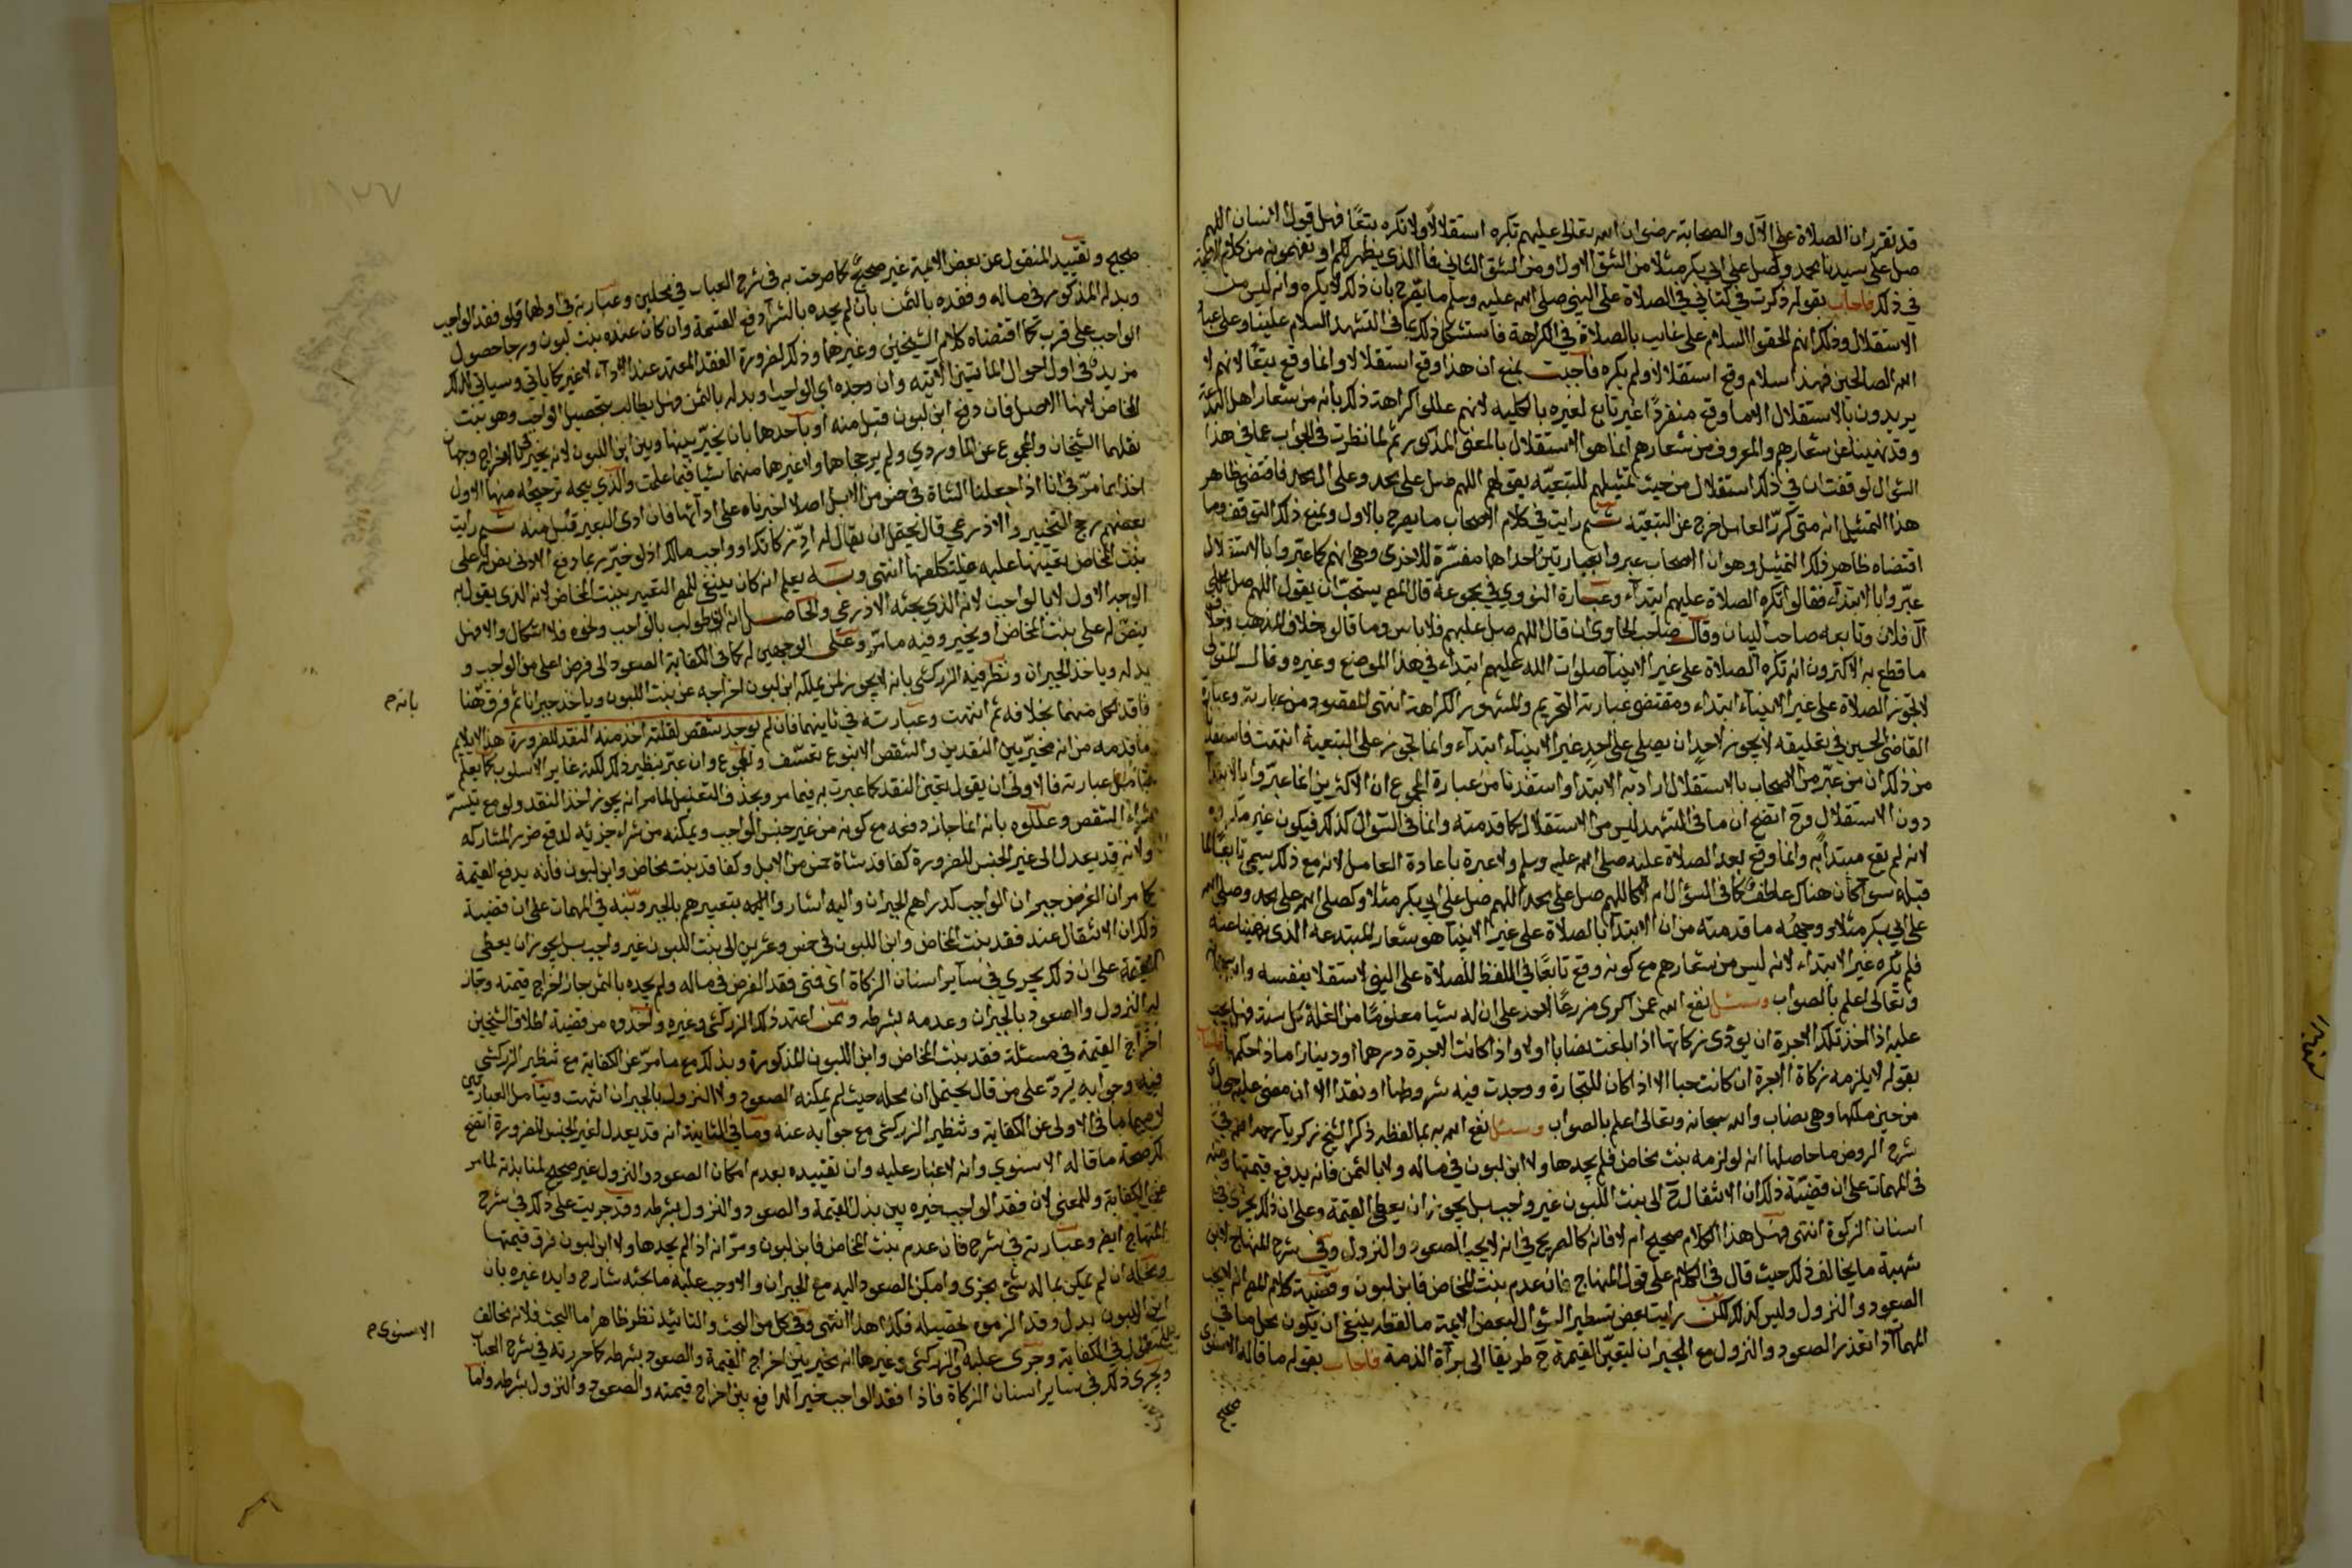 قد تقرر ان الصلاة على الآل والصحابة رضوان الله تعالى عليهم تكره استقلالا ولا تكره تبعًا فهل قول الانسان اللهم
صل على سيدنا محمد وصل على ابي بكر مثلا من الشق الاول او من الشق الثاني فما الذي يظهر لكم او تفهمونه من كلام الائمة
في ذلك فاجاب بقوله ذكرت في كتابي في الصلاة على النبي صلى الله عليه وسلم ما يصرح بان ذلك لا يكره وانه ليس من
الاستقلال وذلك انهم الحقوا السلام على غايب بالصلاة في الكراهة فاستشكل ذلك بما في التشهد السلام علينا وعلى عباد
الله الصالحين فهذا سلام وقع استقلالا ولم يكره فاجبت بمنع ان هذا وقع استقلالا وانما وقع تبعًا لانهم لا
يريدون بالاستقلال الا ما وقع منفردًا غير تابع لغيره بالكلية لانهم عللوا كراهة ذلك بانه من شعار اهل البدعة
وقد نهينا عن شعارهم والمعروف من شعارهم انما هو الاستقلال بالمعنى المذكور ثم لما نظرت في الجواب عما في هذا
السؤال توقفت ان في ذلك استقلال من حيث تمثيلهم للتبعيّة بقولهم اللهم صل على محمد وعلى ال محمد فاقتضى ظاهر
هذا التمثيل انه متى كررّ العامل خرج عن التبعيّة ثم رايت في كلام الاصحاب ما يصرح بالاول ويمنع ذلك التوقف وما
اقتضاه ظاهر ذلك التمثيل وهو ان الاصحاب عبروا بعبارتين احداها مفسّرة للاخرى وهي انهم كما عبّروا بالاستقلال
عبّروا بالابتداء فقالوا تكره الصلاة عليهم ابتداء وعبارة النووي في مجموعه قال المص يستحبّ ان يقول اللهم صل على
آل فلان وتابعه صاحب البيان وقال صاحب الحاوي ان قال اللهم صل عليهم فلا باس وما قالوه خلاف المذهب وخلاف
ما قطع به الاكثرون انه تكره الصلاة على غير الانبيآ صلوات الله عليهم ابتداء في هذا الموضع وغيره وقال المتولي
لا تجوز الصلاة على غير الانبياء ابتداء ومقتضى عبارته التحريم والمشهور الكراهة انتهى المقصود من عبارته وعبارة
القاضي الحسين في تعليقه لا يجوز لاحد ان يصلي على احد غير الانبياء ابتداء وانما تجوز على التبعية انتهت فاستفدنا
من ذلك ان من عبّر من الاصحاب بالاستقلال اراد به الابتدا واستفدنا من عبارة المجموع ان الاكثرين انما عبّروا بالابتدآ
دون الاستقلال وح اتضح ان ما في التشهد ليس من الاستقلال كما قدمته وانما في السؤال كذلك فيكون غير مكروه
لانه لم يقع مبتدأ به وانما وقع بعد الصلاة عليه صلى الله عليه وسلم ولا عبرة باعادة العامل لانه مع ذلك يسمى تابعًا لما
قبله سوآ كان هناك عاطف كما في السؤال ام لا كاللهم صل على محمد اللهم صل على ابي بكر مثلا وكصلى الله على محمد وصلى الله
على ابي بكر مثلا ووجهُه ما قدمته من ان الابتدآ بالصلاة على غير الانبيآ هو شعار المبتدعه الذي نهينا عنه
فلم يكره غير الابتداء لانه ليس من شعارهم مع كونه وقع تابعًا في اللفظ للصلاة على النبي لا مستقلا بنفسه والله سبحانه
وتعالى اعلم بالصواب وسئل نفع الله عمن اكرى مزرعًا لاحد على ان له شيا معلومًا من الغلة كل سنة فهل يجب
عليه اذا اخذ تلك الاجرة ان يؤدى زكاتها اذا بلغت نصابا او لا واذا كانت الاجرة درهما او دينارا ماذا حكمها فاجاب
بقوله لا يلزمه زكاة الاجرة ان كانت حبا الا اذا كان للتجارة ووجدت فيه شروطها او نقدا الا ان مضى عليه حول
من حين ملكها وهي نصاب والله سبحانه وتعالى اعلم بالصواب وسئل نفع الله به بما لفظه ذكر الشيخ زكريآ رحمه الله في
شرح الروض ما حاصلها انه لو لزمه بنت مخاض فلم يجدها ولا ابن لبون في ماله ولا بالثمن فانه يدفع قيمتها ونبه
في المهمات على ان قضيّة ذلك ان الانتقال ح الى بنت اللبون غير واجب بل يجوز ان يعطى القيمة وعلى ان ذلك يجري في
اسنان الزكوة انتهى فهل هذا الكلام صحيح ام لا فانه كالصريح في انه لا يجب الصعود والنزول وفي شرح المنهاج لابن
شهبة ما يخالف ذلك حيث قال في الكلام على قول المنهاج فان عدم بنت المخاض فابن لبون وقضية كلام المص انه لا يجب
الصعود والنزول وليس كذلك لكن رايت بعض تسطير السؤال لبعض الايمة ما لفظه ينبغي ان يكون محل ما في
المهمات اذا تعذر الصعود والنزول مع الجبران لتعيّن القيمة ح طريقا الى برآة الذمة فاجاب بقوله ما قاله الاسنوي
صحيح
صحيح وتقييد المنقول عن بعض الايمة غير صحيح كما صرحت به في شرح العباب في محلين وعبارته في اولهما قولو فقد الواجب
وبدله المذكور في ماله وفقده بالثمن بان لم يجده بالشرآ دفع القيمة وان كان عنده بنت لبون ورجا حصول
الواجب على قرب كما اقتضاه كلام الشيخين وغيرهما وذلك لضرورة الفقد المعتمد عند الادآء لا غير كما ياتي وسياتي لذلك
مزيد في اول احوال المائتين الاتية وان وجده اي الواجب او بدله بالثمن وهل يطالب بتحصيل الواجب وهو بنت
المخاض لانها الاصل فان دفع ابن لبون قبل منه او باحدها بان يخيّر بينها وبين ابن اللبون لانه يخير في الاخراج وجهان
نقلهما الشيخان والمجموع عن الماوردي ولم يرجحاها ولا غيرهما منهما شيا فيما علمت والذي يتجه ترجيحُه منهما الاول
اخذا مما مرّ في انا اذا جعلنا الشاة في خمس من الابل اصلا اجبرناه على ادآئها فان ادى البعير قبل منه ثم رايت
بعضهم رجح التخيير والاذرعي قال يحتمل ان يقال له ادِّ زكاتك او واجب مالك اذ لو خيّر بما دفع الادنى بضرالـ على
بنت المخاض لتعينها عليه فيتكلفها انتهى وبه يعلم انه كان ينبغي للمص التعبير ببنت المخاض لانه الذي يقول به
الوجه الاول لا بالواجب لانه الذي بحثه الاذرعي والحاصل انه ان طولب بالواجب ونحوه فلا اشكال والا فهل
ينص له على بنت المخاض او يخير وفيه ما مرّ وعلى الوجهين له كما في الكفاية الصعود الى فرض اعلى من الواجب و
بدله وياخذ الجبران ونظر فيه الزركشي بانه لا يجوز لمن يملك ابن لبون اخراجه عن بنت اللبون وياخذ جبرانا ثم فرق هنا
بانه م
فاقد لكل منهما بخلافه ثم انتهت وعبارته في ثانيهما فان لم يوجد شقص لقلته اخذ منه النقد للضرورة هذا لا يلايم
ما قدمه من انه مخيّر بين النقدين والشقص الا بنوع تعسّف والمجموع وان عبّر بنظير ذلك لكنه غاير الاسلوب كما يعلم
بتامل عبارته فالاولى ان يقول يتعين النقد كما عبرت به فيما مر ويحذف التعليل لما مر انه يجوز اخذ النقد ولو مع تيسرّ
شرآء الشقص وعللوه بانه انما جاز دفعه مع كونه من غير جنس الواجب ويمكنه من شراء جزئه لدفع ضرر المشاركه
ولانه قد يعدل الى غير الجنس للضرورة كفاقد شاة خمس من الابل وكفاقد بنت مخاض وابن لبون فانه يدفع القيمة
كما مر ان الغرض جبران الواجب كدراهم الجبران واليه اشاروا بتعبيرهم بالجبر ونبّه في المهمات على ان قضية
ذلك ان الانتقال عند فقد بنت المخاض وابن اللبون في خمس وعشرين الى بنت اللبون غير واجب بل يجوز ان يعطى
القيمة على ان ذلك يجري في سآير اسنان الزكاة اي فمتى فقد الفرض في ماله ولم يجده بالثمن جاز اخراج قيمته وجاز
له النزول والصعود بالجبران وعدمه بشرطه وممن اعتمد ذلك الزركشي وغيره واخذوه من قضية اطلاق الشيخين
اخراج القيمة في مسئلة فقد بنت المخاض وابن اللبون المذكورة وبذلك مع ما مرّ عن الكفاية مع تنظير الزركشي
فيه وجوابه يردّ على من قال يحتمل ان محله حيث لم يمكنه الصعود ولا النزول بالجبران انتهت وبتامل العبارتين
لا سيما ما في الاولى عن الكفاية وتنظير الزركشي مع جوابه عنه وما في الثانية انه قد يعدل لغير الجنس للضرورة اتضح
لك صحة ما قاله الاسنوي وانه لا غبار عليه وان تقييده بعدم امكان الصعود والنزول غير صحيح لمنابذته لما مر
عن الكفاية وللمعنى لان فقد الواجب خيره بين بذل القيمة والصعود والنزول بشرطه وقد جريت على ذلك في شرح
المنهاج ايضم وعبارته في شرح فان عدم بنت المخاض فابن لبون ومرّ انه اذا لم يجدها ولا ابن لبون فرق قيمتها
ومحله ان لم يكن بماله شئ يجزى وامكن الصعود اليه مع الجبران والا وجب عليه ما بحثه شارح وايده غيره بان
ابن اللبون بدل وقد الزموه تحصيله فكذا هذا انتهى وفي كل من البحث والتائيد نظر ظاهر اما البحث فلانه مخالف
للمنقول في الكفاية وجرى عليه والزركشي وغيرها انه يخير بين اخراج القيمة والصعود بشرطه كما حررته في شرح العباب
الاسنوي م
ويجرى ذلك في ساير اسنان الزكاة فاذا فقد الواجب خير الدافع بين اخراج قيمته والصعود والنزول بشرطه وانما